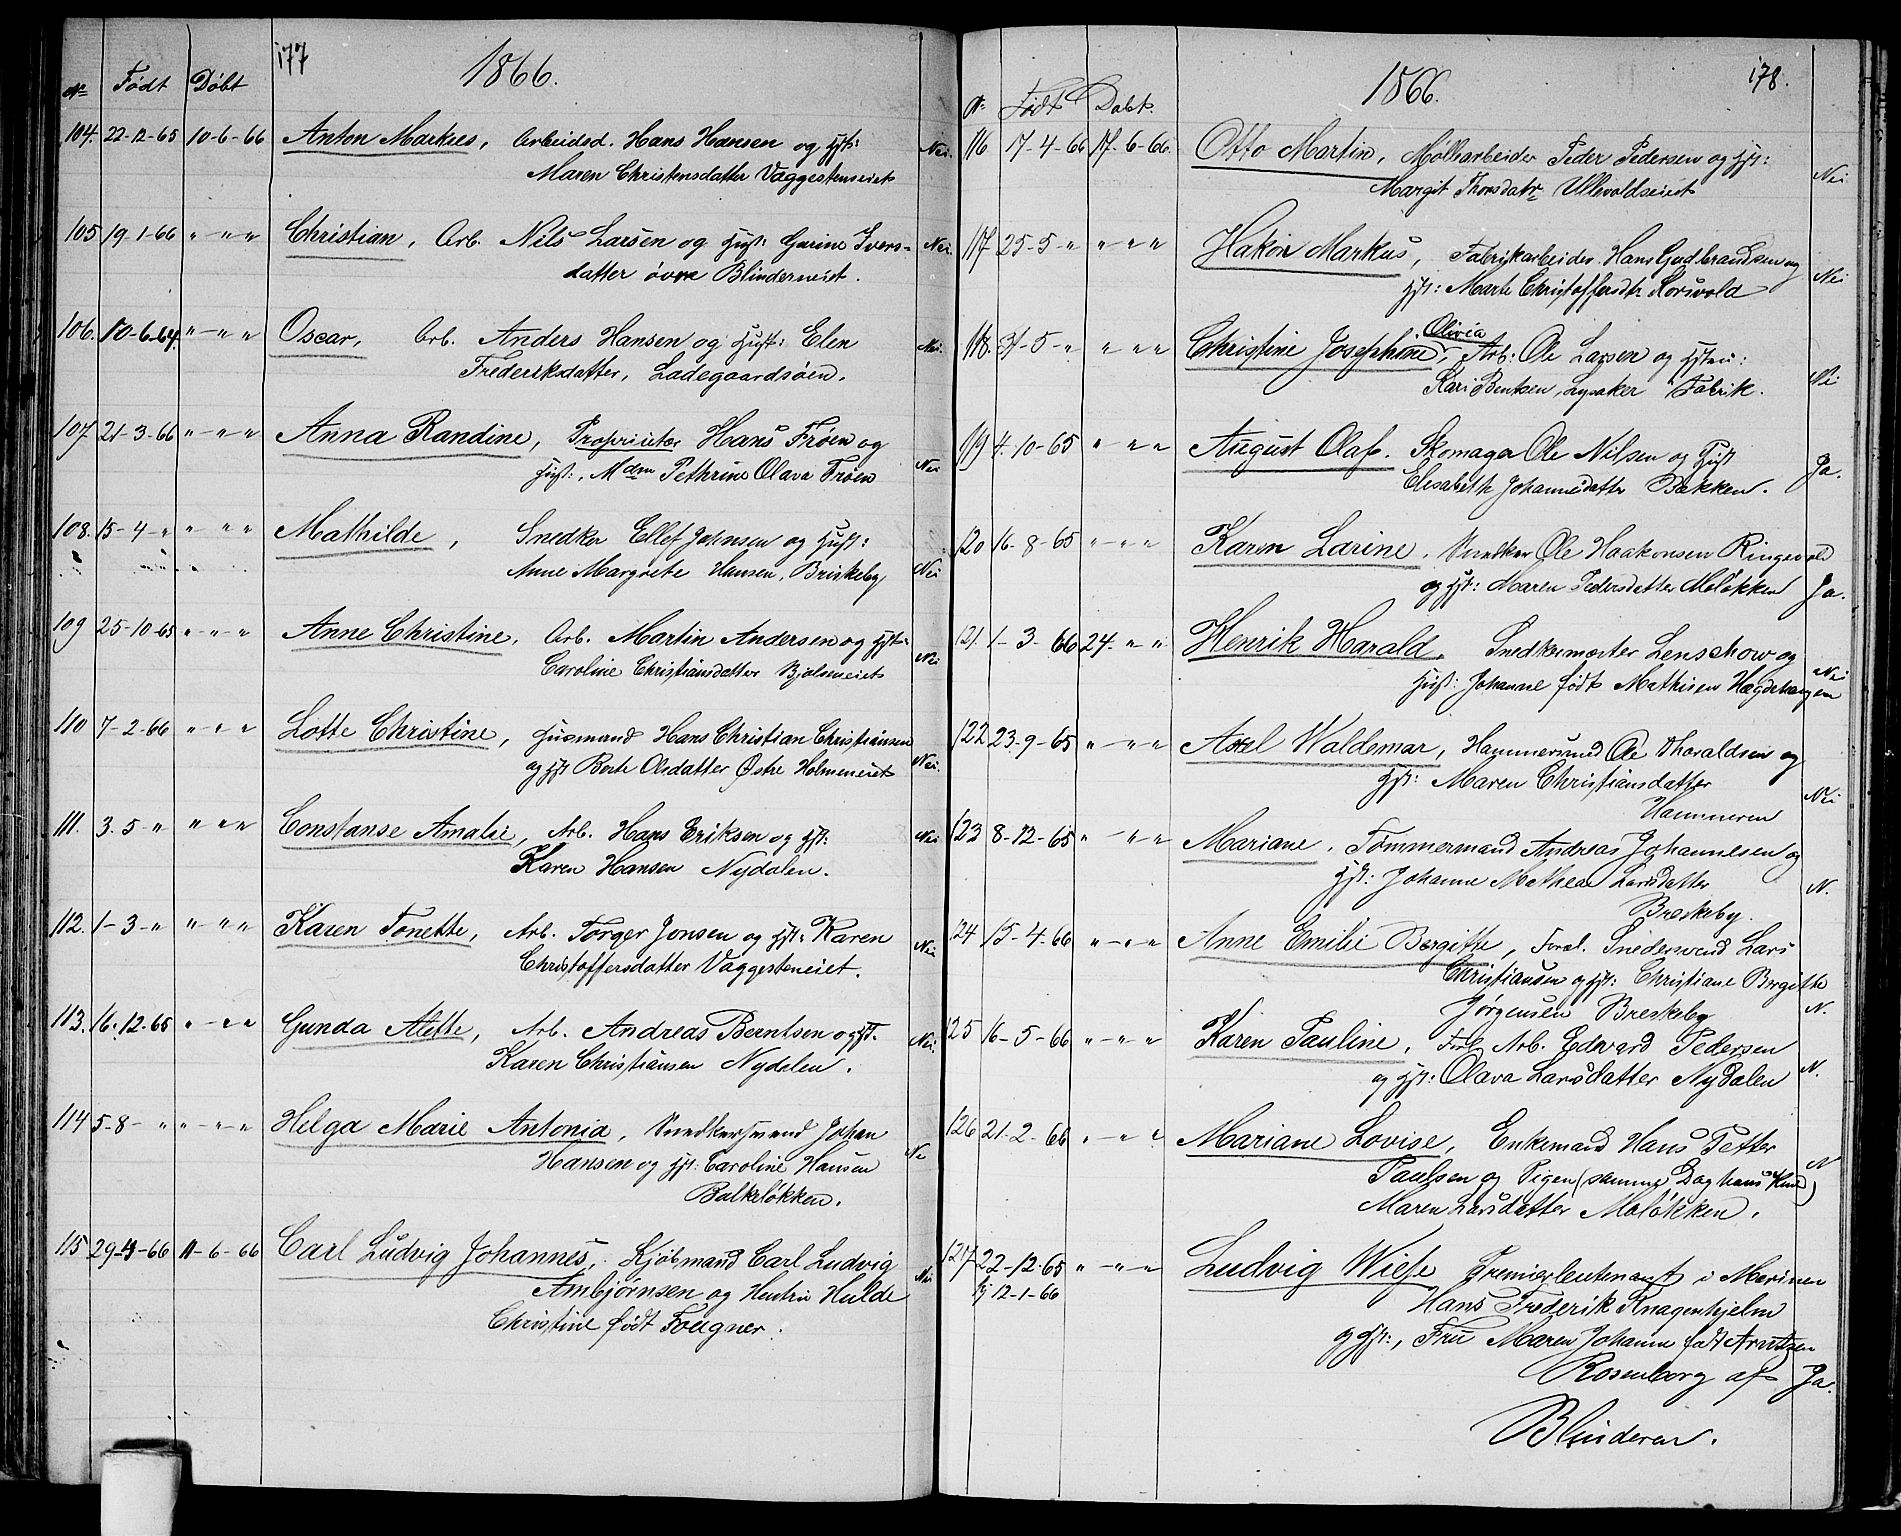 177
1866.
No Født Døbt
104. 22-12-65 10-6-66 Anton Markus, Arbeidsd. Hans Hansen og Hust: Nei.
Maren Christensdatter Vaggestenseiet
105 19-1-66 " -" -" Christian, Arb. Nils Larsen og Hust: Gurine Ivers- Nei.
datter øvre Blinderneiet.
106. 10-6-64. " -" -" Oscar, Arb. Anders Hansen og Hust: Elen Nei.
Frederiksdatter, Ladegaardsøen.
107 21-3-66 " -" -" Anna Randine, Proprietær Hans Frøen og
Hust:, Mdm Pethrine Olava Frøen Nei
108. 15-4-" " -" " Mathilde, Snedker Ellef Johnsen og Hust:
Anne Margrete Hansen, Briskeby Nei
109 25-10-65 " -" -" Anne Christine, Arb. Martin Andersen og Hst:
Caroline Christiansdatter Bjølseneiet Nei
110 7-2-66 " -" -" Lotte Christine, Husmand Hans Christian Christiansen
og Hst Berte Olsdatter Østre Holmeneiet Nei.
111. 3. 5 -" " -" " Constanse Amalie, Arb. Hans Eriksen og Hst: Nei
Karen Hansen Nydalen.
112. 1-3-" " -" " Karen Tonette, Arb. Torger Jonsen og Hst: Karen Nei
Christoffersdatter Vaggesteneiet.
113. 16.-12-65 " -" -" Gunda Alette, Arb. Andreas Berntsen og Hst. Nei.
Karen Christiansen Nydalen.
114 5-8-" " -" -" Helga Marie Antonia, Snedkersvend Johan
Hansen og Hst: Caroline Hansen Ne
Balkeløkken.
115 29-4-66 11-6-66 Carl Ludvig Johannes, Kjøbmand Carl Ludvig
Ambjørnsen og Hustru Hulde Nei
Christine født Fougner.
178.
1866.
N. Født Døbt.
116 17-4-66 17-6-66. Otto Martin, Møllearbeider Peder Pedersen og Hst:
Margit Thorsdatr Ullevoldseiet Nei
117 25-5-" " " " Hakon Markus, Fabrikarbeider Hans Gudbrandsen og
Hst: Marte Christoffersdtr Korsvold Nei
Olivia
118. 31-5-" " " " Christine Josephine, Arb: Ole Larsen og Hstru:
Kari Bentsen, Lysaker Fabrik. Nei
119 4-10-65 " " " August Olaf. Skomager Ole Nilsen og Hust
Elisabeth Johannesdatter Bakken. Ja.
120 16-8-65 " -" " Karen Larine, Snedker Ole Haakonsen Ringevold
og Hst: Maren Pedersdatter Meløkken Ja.
121. 1-3-66 24. " " Henrik Harald. Snedkermester Lenschow og
Hust: Johanne født Mathisen Hægdehaugen Nei
122 23-9-65 " -" " Axel Waldemar, Hammersmed Ole Thoraldsen og
Hst: Maren Christiansdatter Nei
Hammeren
123 8-12-65 " -" " Mariane, Tømmermand Andreas Johannesen og
Hst: Johanne Mathea Larsdatter N.
Breskeby.
124 15-4-66 " -" " Anne Emilie Bergitte, Foræl. Snedersvend Lars
Christiansen og Hst: Christiane Bergitte
Jørgensen Breskeby N.
125 16-5-66 " -" " Karen Pauline, Forl Arb. Edevard Pedersen
og Hst: Olava Larsdatter Nydalen N.
126 21-2-66 " -" " Mariane Lovise, Enkemand Hans Petter
Paulsen og Pigen (samme Dag hans Kone) N
Maren Larsdatter Meløkken.
127 22-12-65 " -" " Ludvig Wiese Premierleutenant i Marinen
hj 12-1-66 Hans Frederik Knagenhjelm
og Hst:, Fru Maren Johanne født Arntzen
Rosenborg af Ja.
Blinderen.